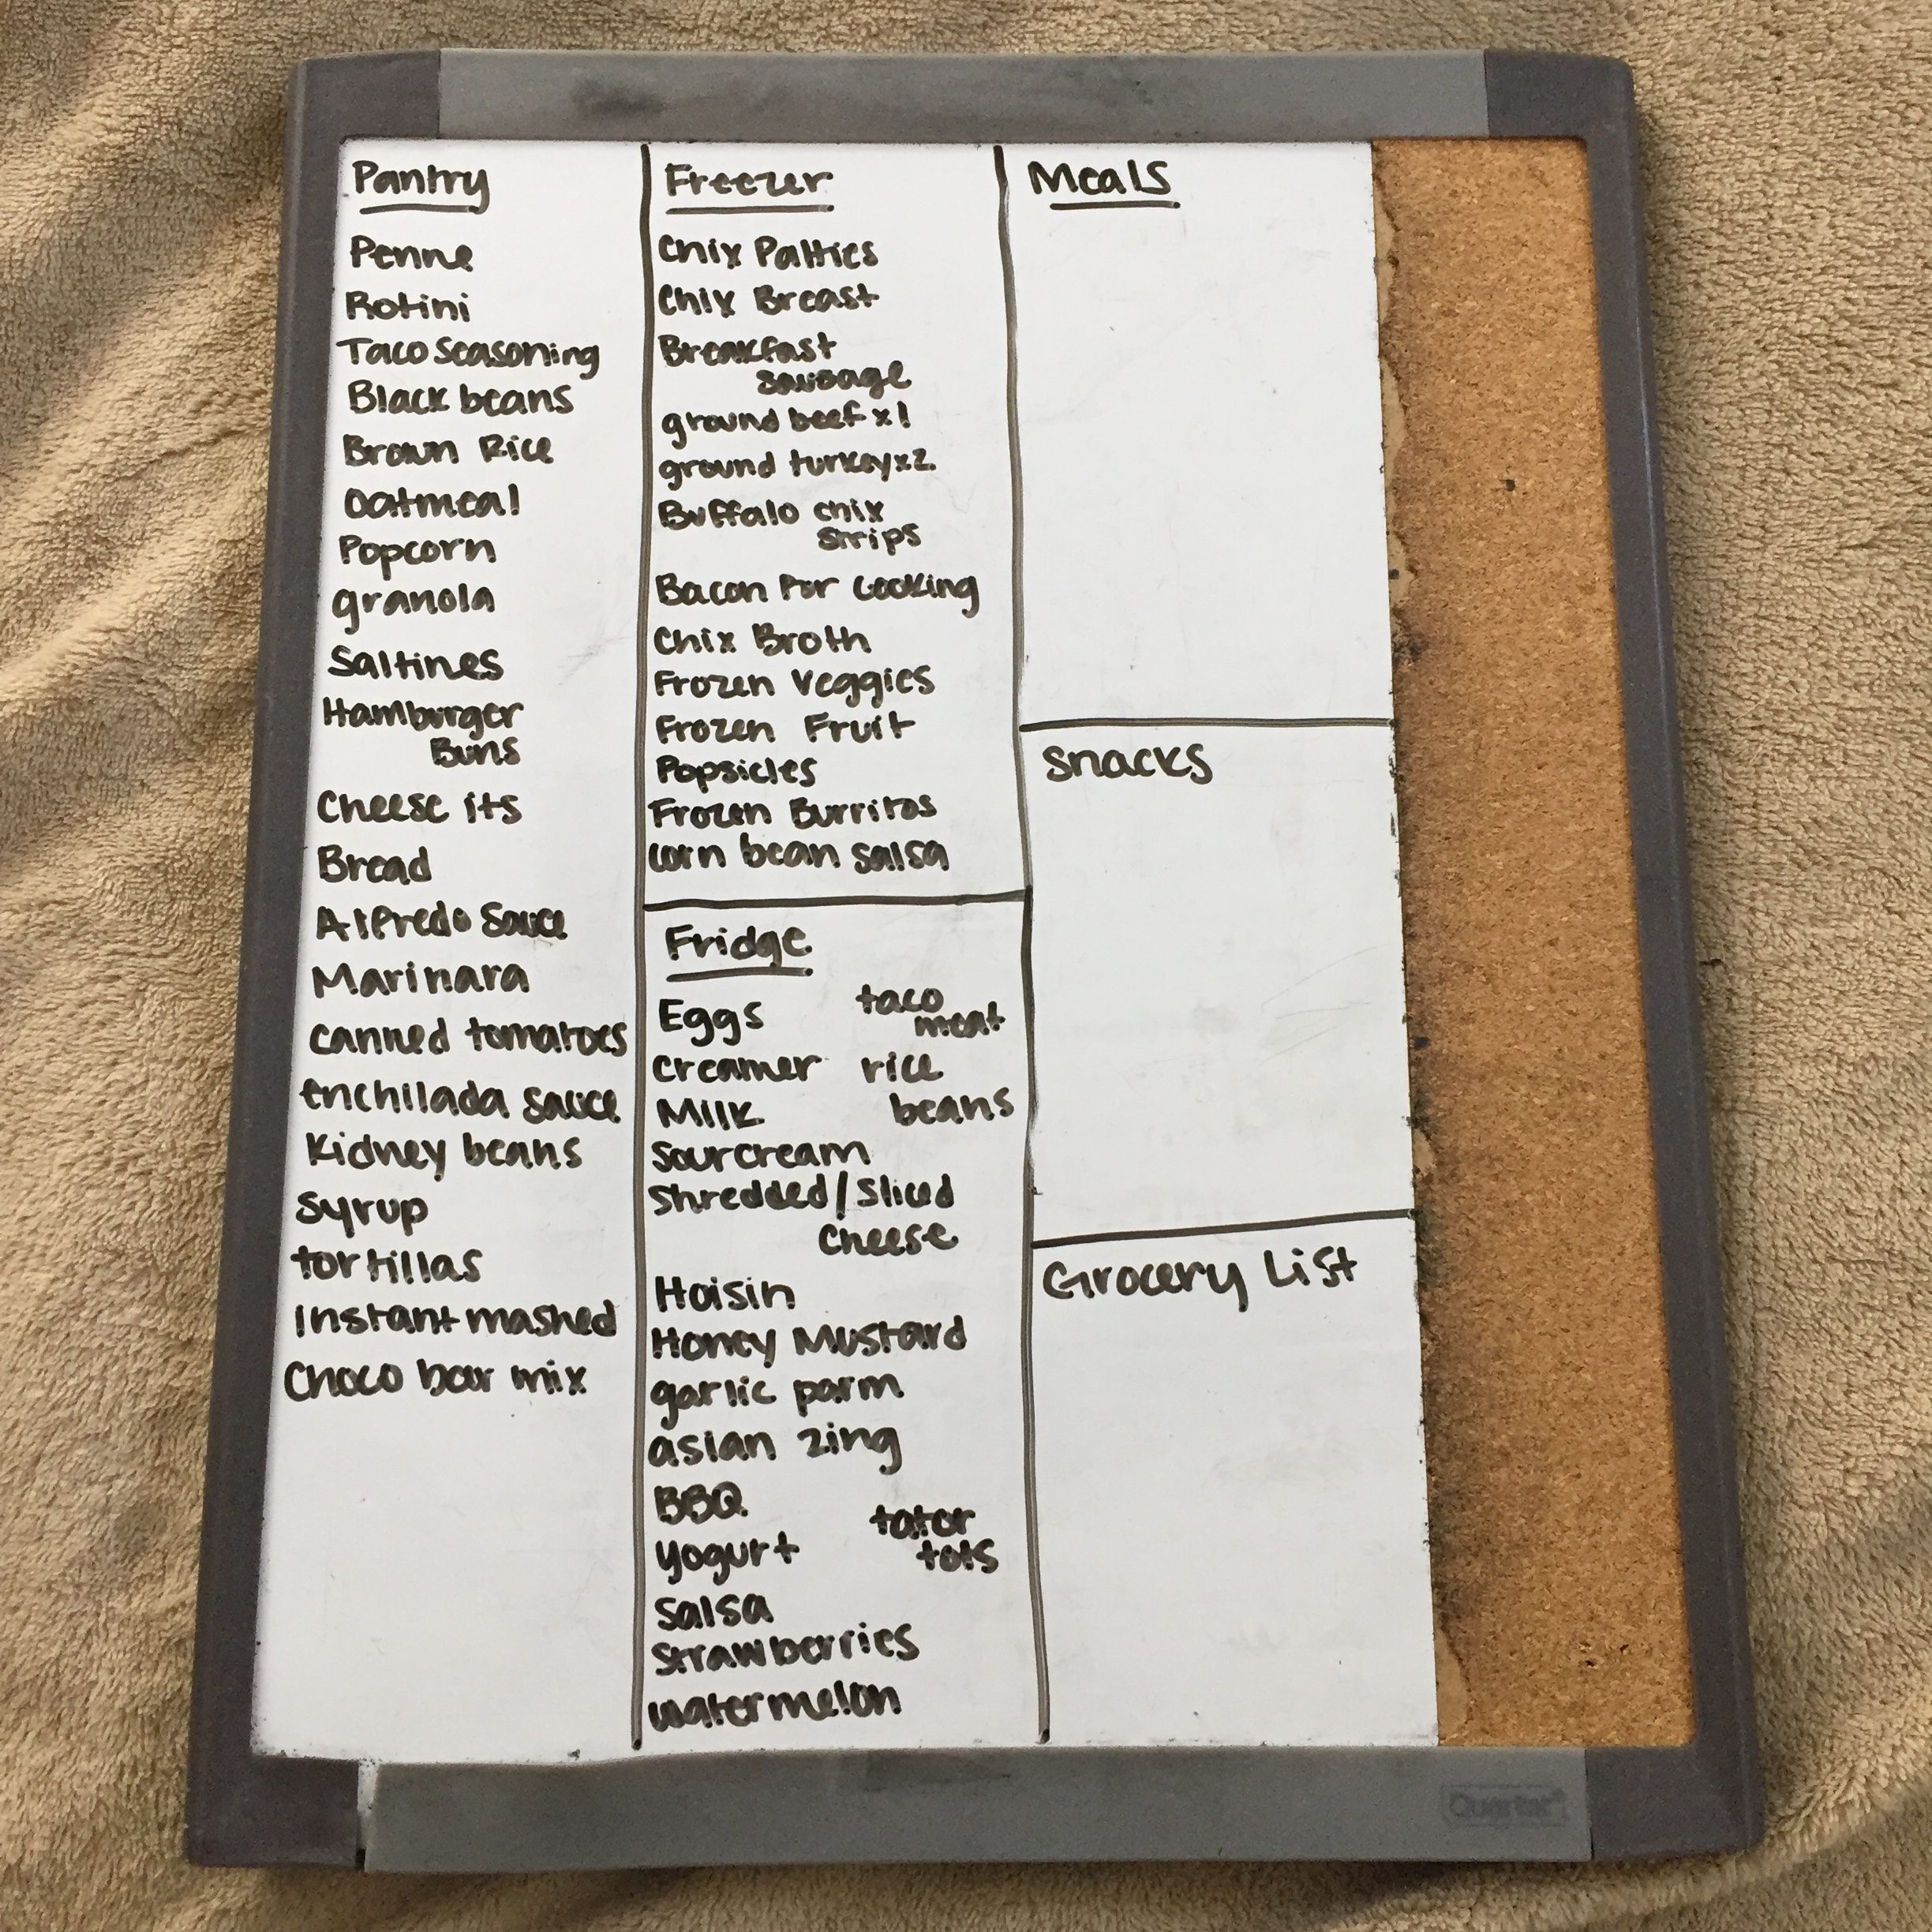 Pantry
Penne
Rotini
Taco Seasoning
Black beans
Brown Rice
Oatmeal
Popcorn
granola
Saltines
Hamburger
Buns
Cheese its
Bread
Alfredo Sauce
Marinara
canned tomatoes
enchilada sauce
kidney beans
syrup
tortillas
Instant mashed
Choco bar mix
Freezer
Chix Patties
Chix Breast
Breakfast
sausage
ground beef x1
ground turkey x2
Buffalo chix
strips
Bacon for cooking
Chix Broth
Frozen Veggies
Frozen Fruit
Popsicles
Frozen Burritos
corn bean salsa
Fridge
Eggs
Creamer
Milk
Sourcream
Shredded/Sliced
Cheese
Hoisin
Honey Mustard
garlic parm
asian zing
BBQ
yogurt
salsa
Strawberries
watermelon
taco
meat
rice
beans
tator
tots
Meals
Snacks
Grocery List
Quartet